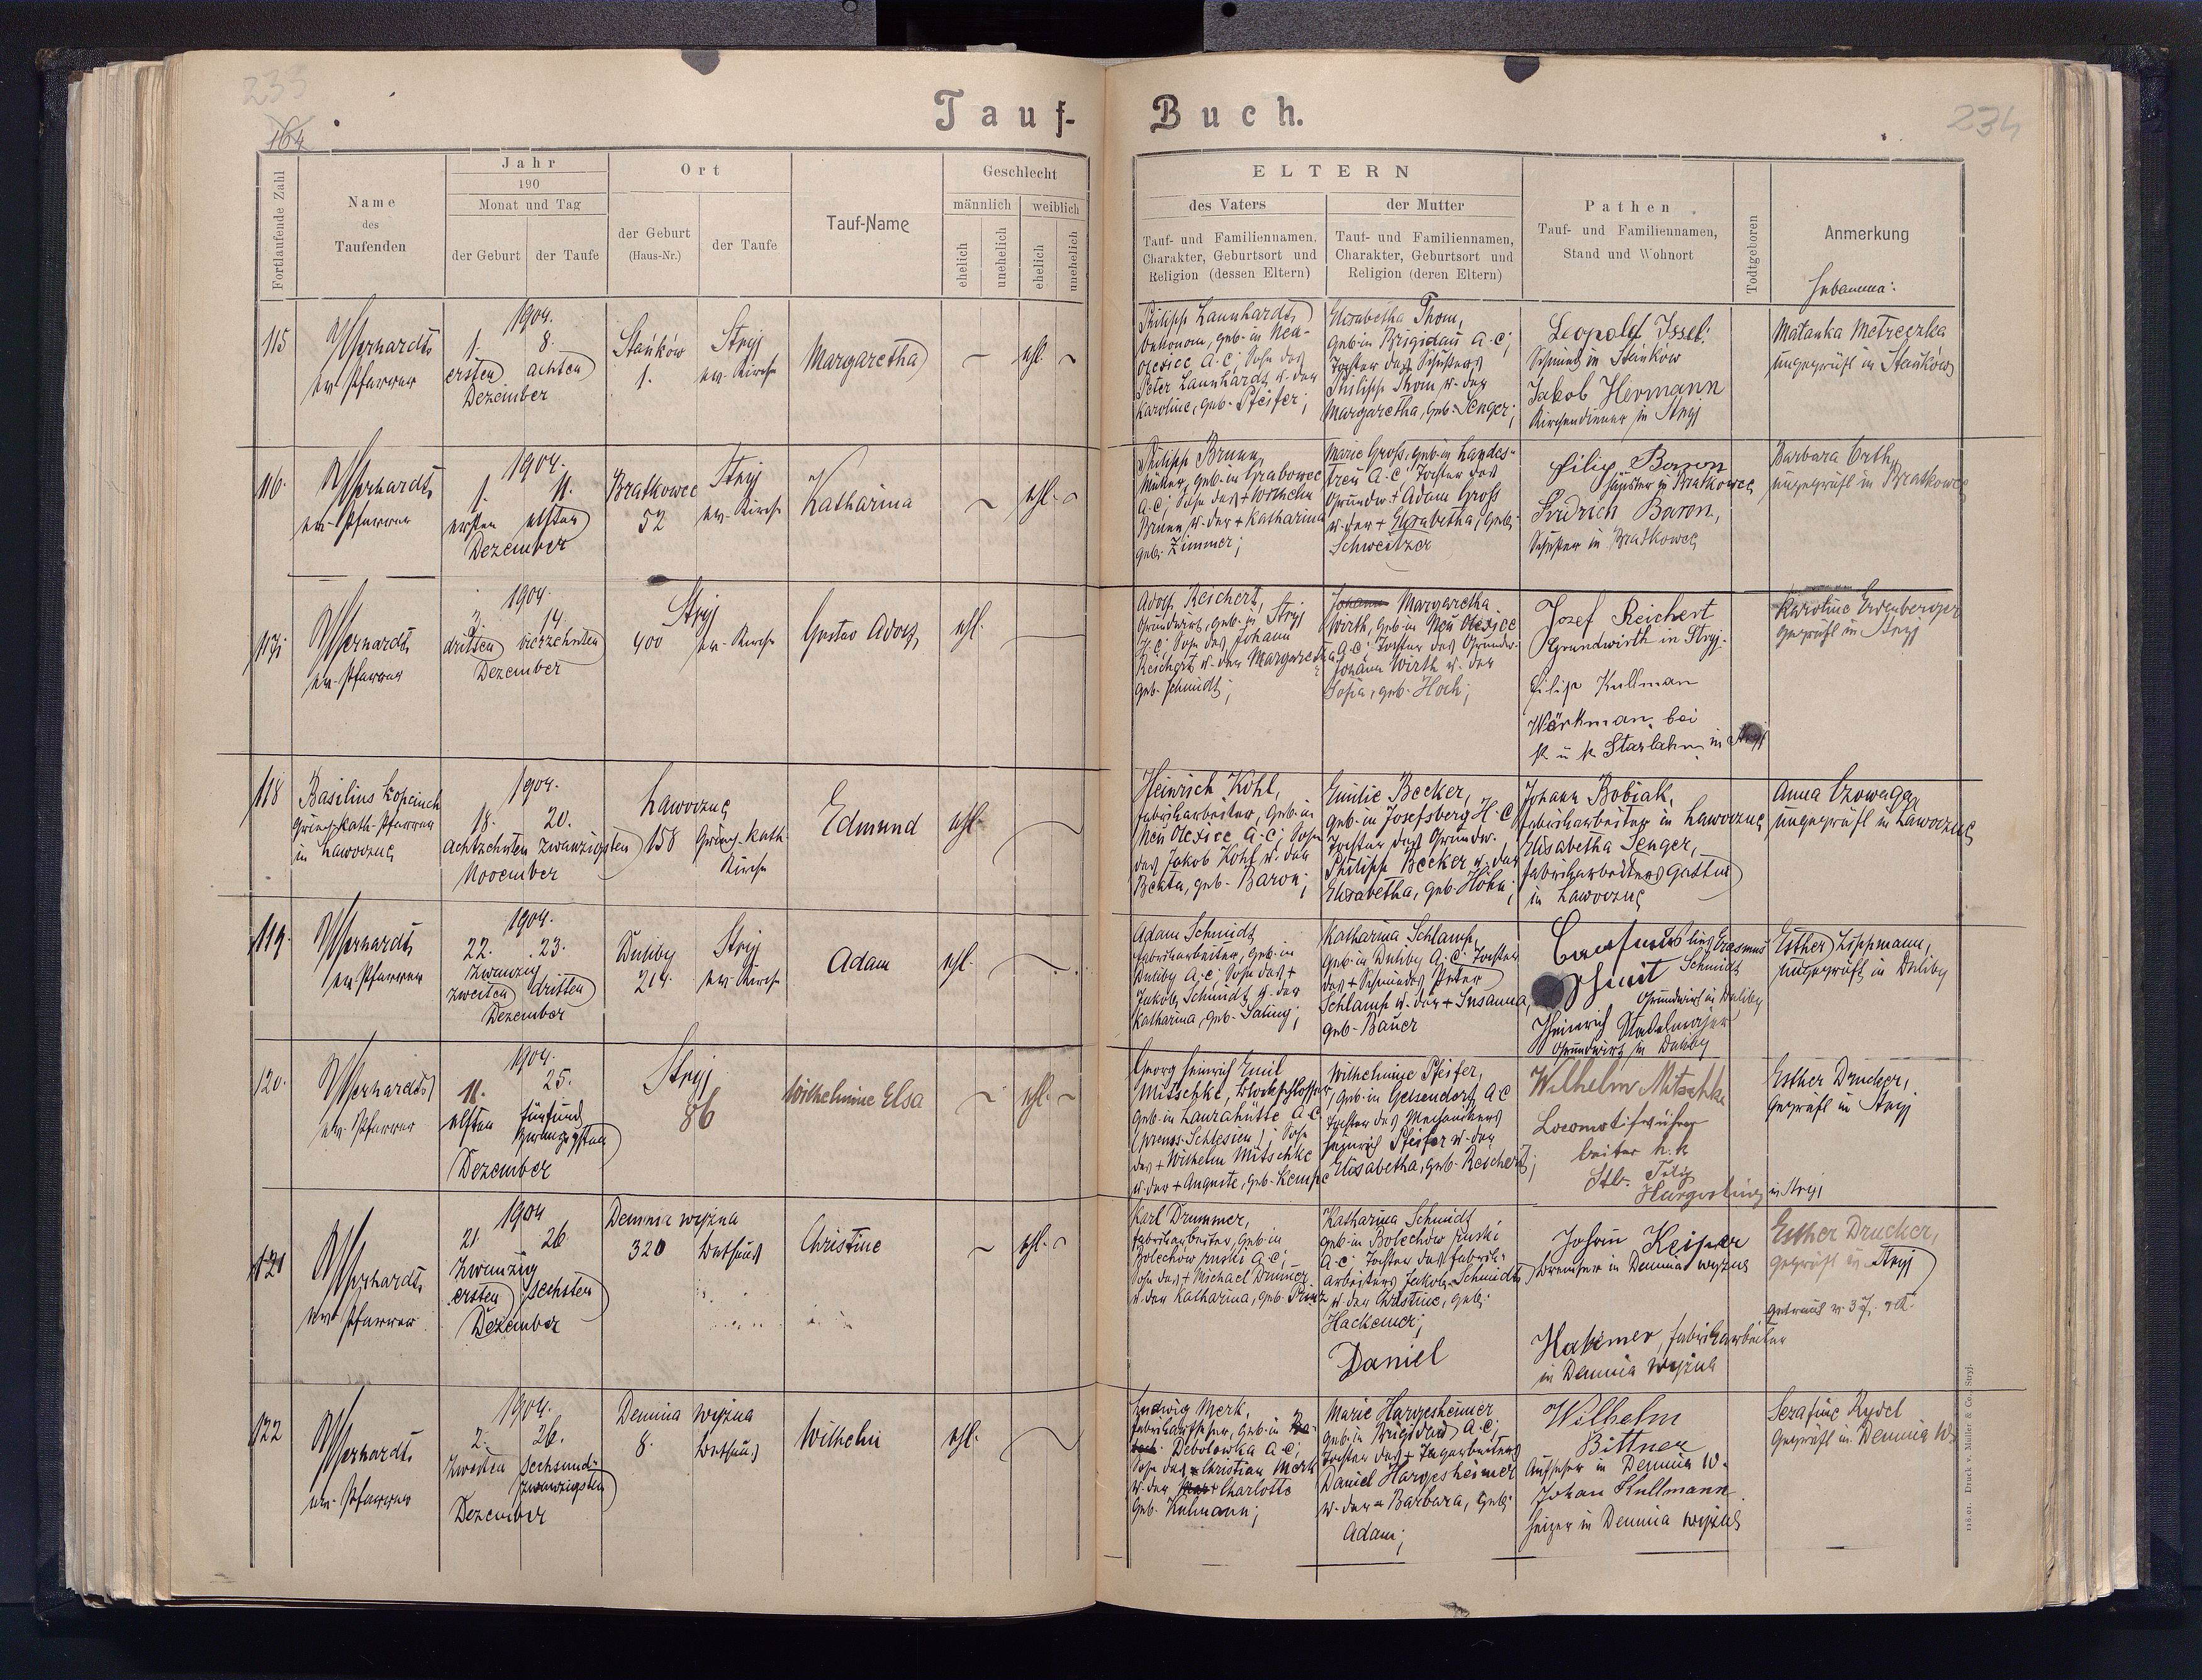 233
164
Tauf-
Buch.
234
Fortlaufende Zahl
Name
des
Taufenden
Jahr
190
Monat und Tag
der Geburt
der Taufe
Ort
der Geburt
(Haus-Nr.)
der Taufe
Tauf-Name
Geschlecht
männlich
weiblich
ehelich
unehelich
ehelich
unehelich
ELTERN
des Vaters
Tauf- und Familiennamen,
Charakter, Geburtsort und
Religion (dessen Eltern)
der Mutter
Tauf- und Familiennamen,
Charakter, Geburtsort und
Religion (deren Eltern)
Pathen
Tauf- und Familiennamen,
Stand und Wohnort
Todtgeboren
Anmerkung
Hebamme:
115
ev. Pfarrer
1904.
1. 8.
ersten achten
Dezember
Stańków
1.
Stryj
ev. Kirche
Margaretha
ehl.
Philipp Launhardt,
Oekonom, geb. in Neu-
Olesice A.C; Sohn des
Peter Launhardt u. der
Karoline, geb. Pfeifer;
Elisabetha Thom,
geb. in Brigidau A.C;
Tochter des Schusters
Philipp Thom u. der
Margaretha, geb. Senger;
Leopold Issel.
Schmied in Stańków
Jakob Hermann
Kirchendiener in Stryj
Matanka Metreczka
ungeprüft in Stańków
116.
ev. Pfarrer
1904.
1. 11.
ersten elften
Dezember
Bratkowce
52
Stryj
ev. Kirche
Katharina
ehl.
Philipp Brunn,
Müller, geb. in Grabowce
A.C; Sohn des + Wilhelm
Brunn u. der + Katharina
geb. Zimmer;
Marie Groß, geb. in Landes-
treu A.C Tochter des
Grundw. + Adam Groß
u. der + Elisabetha, geb.
Schweitzer
Filip Baron
in Bratkowce
Fridrich Baron,
Schuster in Bratkowce
Barbara Orth,
ungeprüft in Bratkowce
117.
ev. Pfarrer
1904.
3. 14.
dritten vierzehnten
Dezember
Stryj
400
ev. Kirche
Gustav Adolf,
ehl.
Adolf Reichert,
Grundwirt, geb. in Stryj
H.C; Sohn des Johann
Reichert u. der Margaretha
geb. Schmidt;
Johann Margaretha
Wirth, geb. in Neu Olesice
A.C; Tochter des Grundw.
Johann Wirth u. der
Sofia, geb. Hoch;
Jozef Reichert
Grundwirth in Stryj.
Filip Kullman
Wärkman bei
k u k Starbahn in Stryj
Karoline Erdenberger
geprüft in Stryj
118
Basilius Kopcinch
Griech. Kath. Pfarrer
in Lawoczne
1904.
18. 20.
achtzehnten zwanzigsten
November
Lawoczne
158
Griech. Kath.
Kirche
Edmund
ehl.
Heinrich Kohl,
Fabriksarbeiter, geb. in
Neu Olesice A.C; Sohn
des Jakob Kohl u. der
Berta, geb. Baron;
Emilie Becker,
geb. in Josefsberg H.C
Tochter des Grundw.
Philipp Becker u. der
Elisabetha, geb. Höhn;
Johann Bobiak,
Fabriksarbeiter in Lawoczne
Elisabetha Senger,
Fabriksarbeiters Gattin
in Lawoczne
Anna
ungeprüft in Lawoczne
119.
ev. Pfarrer
1904.
22. 23.
Zwanzig
zweiten dritten
Dezember
Duliby
214.
Stryj
ev. Kirche
Adam
ehl.
Adam Schmidt,
Fabriksarbeiter, geb. in
Duliby A.C; Sohn des +
Jakob Schmidt u. der
Katharina, geb. Sating;
Katharina Schlamp,
geb. in Duliby A.C; Tochter
des + Schmiedes Peter
Schlamp u. der + Susanna,
geb. Bauer
lies Erasmus
Schmidt
Grundwirt in Duliby
Heinrich Stadelmajer
Grundwirt in Duliby
Esther Lippmann,
ungeprüft in Duliby
120.
ev. Pfarrer
1904.
11. 25.
elften fünfund
zwanzigsten
Dezember
Stryj
86
Wilhelmine Elsa
ehl.
Georg Heinrich Emil
Mitschke, Werkschlosser,
geb. in Laurahütte A.C
(preuss. Schlesien); Sohn
des + Wilhelm Mitschke
u. der + Auguste, geb. Kempe
Wilhelmine Pfeifer,
geb. in Gelsendorf A.C
Tochter des Mechanikers
Heinrich Pfeifer u. der
Elisabetha, geb. Reichert;
Wilhelm Mitschke
Locomotifwührer
beiter k. k
Stb. Filip
in Stryj
Esther Drucker,
geprüft in Stryj
121
ev. Pfarrer
1904
21. 26
Zwanzig
ersten sechsten
Dezember
Demnia wyżna
320
Bethaus
Christine
ehl.
Karl Drummer,
Fabriksarbeiter, geb. in
Bolechów ruski A.C;
Sohn des + Michael Drummer
u. der Katharina, geb. Prinz
Katharina Schmidt
geb. in Bolechów ruski
A.C; Tochter des Fabrik-
arbeiters Jakob Schmidt
u. der Christine, geb.
Hackemer;
Daniel
Johann Keiper
in Demnia wyżna
Hakemer, Fabriksarbeiter
in Demnia wyżna
Esther Drucker,
geprüft in Stryj
122
ev. Pfarrer
1904.
2. 26.
zweiten sechsund-
zwanzigsten
Dezember
Demnia wyżna
8.
Bethaus
Wilhelm
ehl.
Ludwig Merk,
Fabriksaufseher, geb. in
Debolówka A.C;
Sohn des Christian Merk
u. der Charlotte
geb. Kulmann;
Marie Hargesheimer
geb. in Brigidau A.C;
Tochter des + Tagarbeiters
Daniel Hargesheimer
u. der Barbara, geb.
Adam;
Wilhelm
Bittner
Aufseher in Demnia W.
Johan Kullmann
Heizer in Demnia wyżna
Serafine Rydel
Geprüft in Demnia W.
116.01. Druck v. Müller & Co., Stryj.